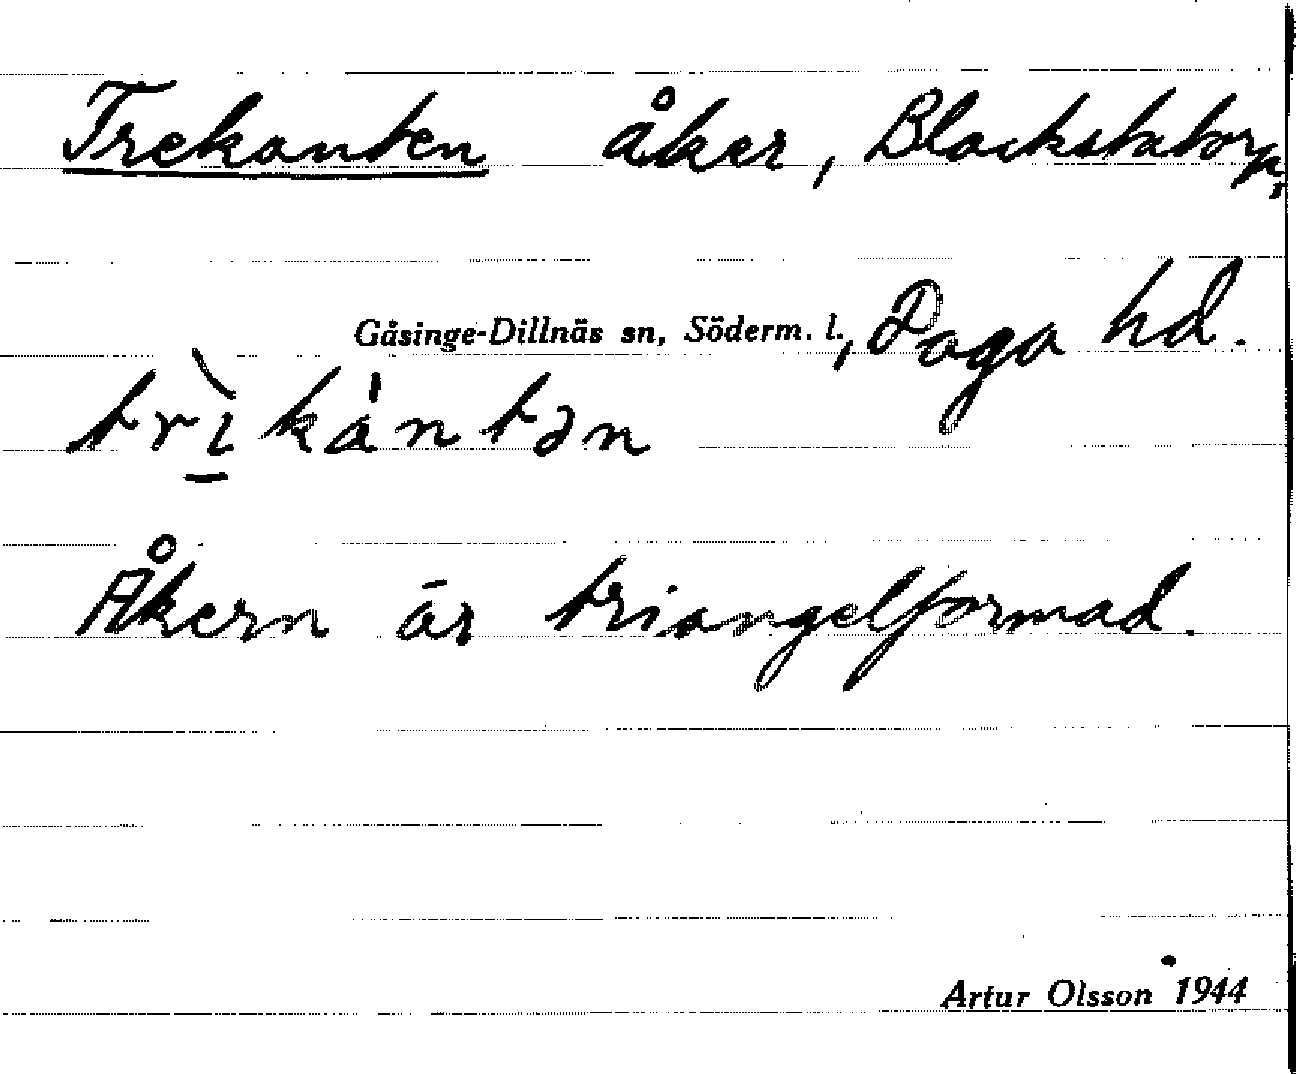 Trekanten åker, Blackstatorp,
Gåsinge-Dillnäs sn, Söderm. l., Daga hd.
trì̱kántən
Åkern är triangelformad.
Artur Olsson 1944